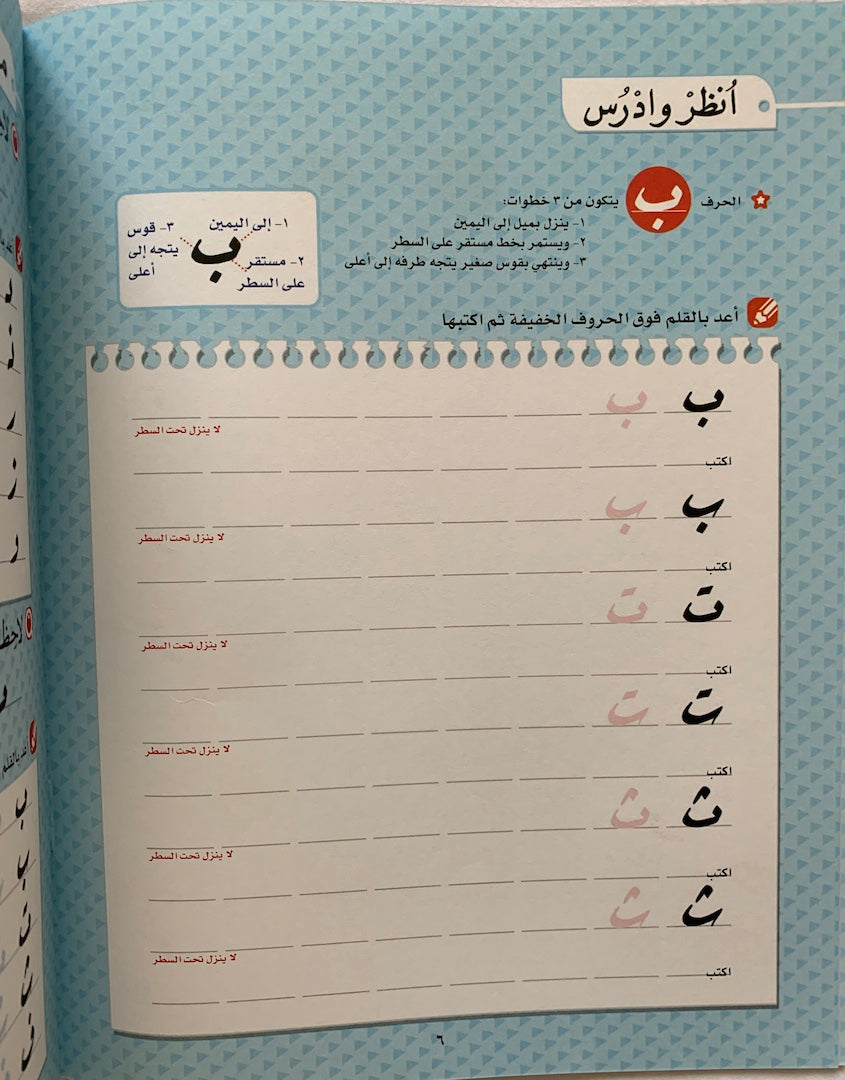 أُنظرْ وادْرُس
الحرف ب يتكون من ٣ خطوات:
١- ينزل بميل إلى اليمين
٢- ويستمر بخط مستقر على السطر
٣- وينتهي بقوس صغير يتجه طرفه إلى أعلى
١- إلى اليمين
٢- مستقر
على السطر
٣- قوس
يتجه إلى
أعلى
ب
أعد بالقلم فوق الحروف الخفيفة ثم اكتبها
ب ب
لا ينزل تحت السطر
اكتب
ب ب
لا ينزل تحت السطر
اكتب
ت ت
لا ينزل تحت السطر
اكتب
ت ت
لا ينزل تحت السطر
اكتب
ث ث
لا ينزل تحت السطر
اكتب
ث ث
لا ينزل تحت السطر
اكتب
٦
أعد بالقلم
ب
ب
ت
ث
ف